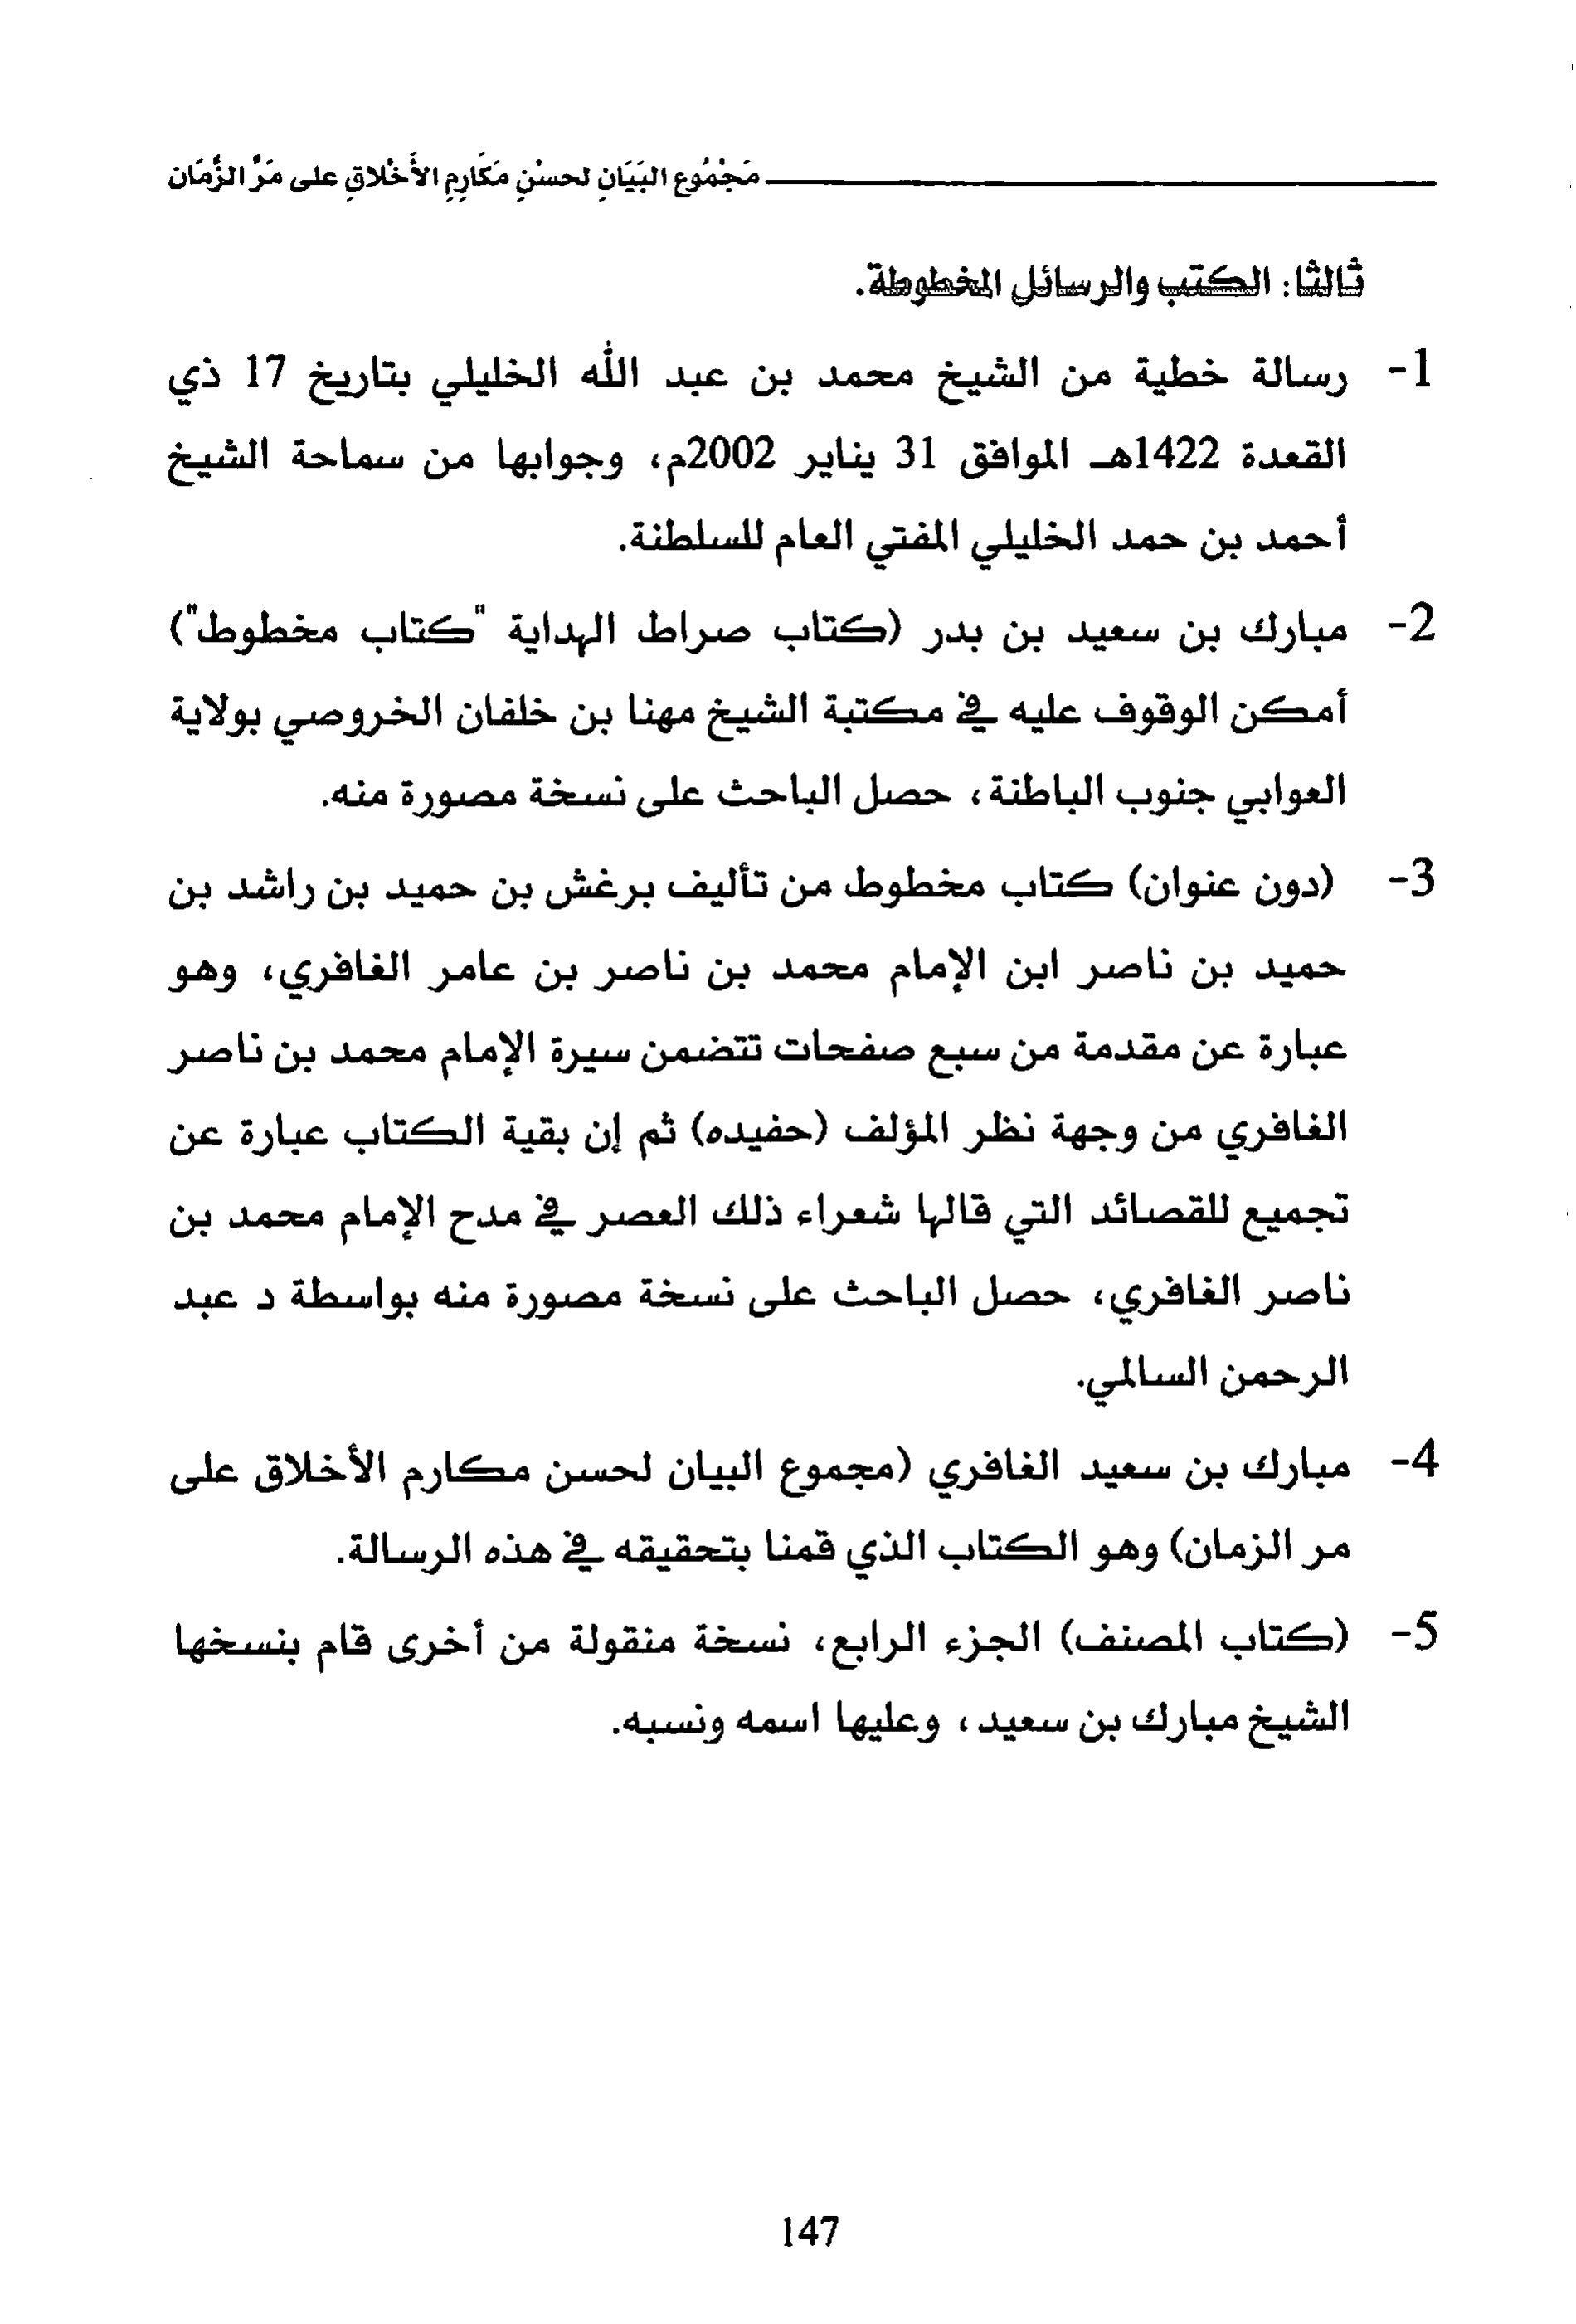 مَجْمُوع البَيَانِ لحسْنِ مَكَارِمِ الأَخْلاقِ على مَرِّ الزَّمَان
ثالثا: الكتب والرسائل المخطوطة.
1- رسالة خطية من الشيخ محمد بن عبد الله الخليلي بتاريخ 17 ذي
القعدة 1422هـ الموافق 31 يناير 2002م، وجوابها من سماحة الشيخ
أحمد بن حمد الخليلي المفتي العام للسلطنة.
2- مبارك بن سعيد بن بدر (كتاب صراط الهداية "كتاب مخطوط")
أمكن الوقوف عليه في مكتبة الشيخ مهنا بن خلفان الخروصي بولاية
العوابي جنوب الباطنة، حصل الباحث على نسخة مصورة منه.
3- (دون عنوان) كتاب مخطوط من تأليف برغش بن حميد بن راشد بن
حميد بن ناصر ابن الإمام محمد بن ناصر بن عامر الغافري، وهو
عبارة عن مقدمة من سبع صفحات تتضمن سيرة الإمام محمد بن ناصر
الغافري من وجهة نظر المؤلف (حفيده) ثم إن بقية الكتاب عبارة عن
تجميع للقصائد التي قالها شعراء ذلك العصر في مدح الإمام محمد بن
ناصر الغافري، حصل الباحث على نسخة مصورة منه بواسطة د عبد
الرحمن السالمي.
4- مبارك بن سعيد الغافري (مجموع البيان لحسن مكارم الأخلاق على
مر الزمان) وهو الكتاب الذي قمنا بتحقيقه في هذه الرسالة.
5- (كتاب المصنف) الجزء الرابع، نسخة منقولة من أخرى قام بنسخها
الشيخ مبارك بن سعيد، وعليها اسمه ونسبه.
147